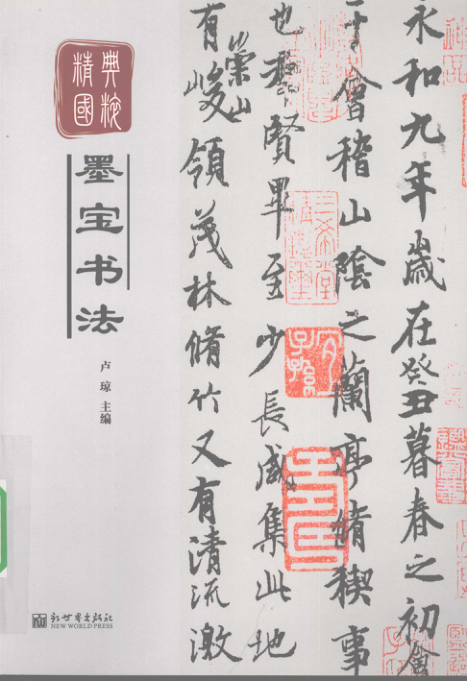 精典
國粹
墨宝书法
卢琼 主编
新世界出版社
NEW WORLD PRESS
永和九年歲在癸丑暮春之初會
于會稽山陰之蘭亭脩稧事
也羣賢畢至少長咸集此地
有崇山峻領茂林脩竹又有清流激